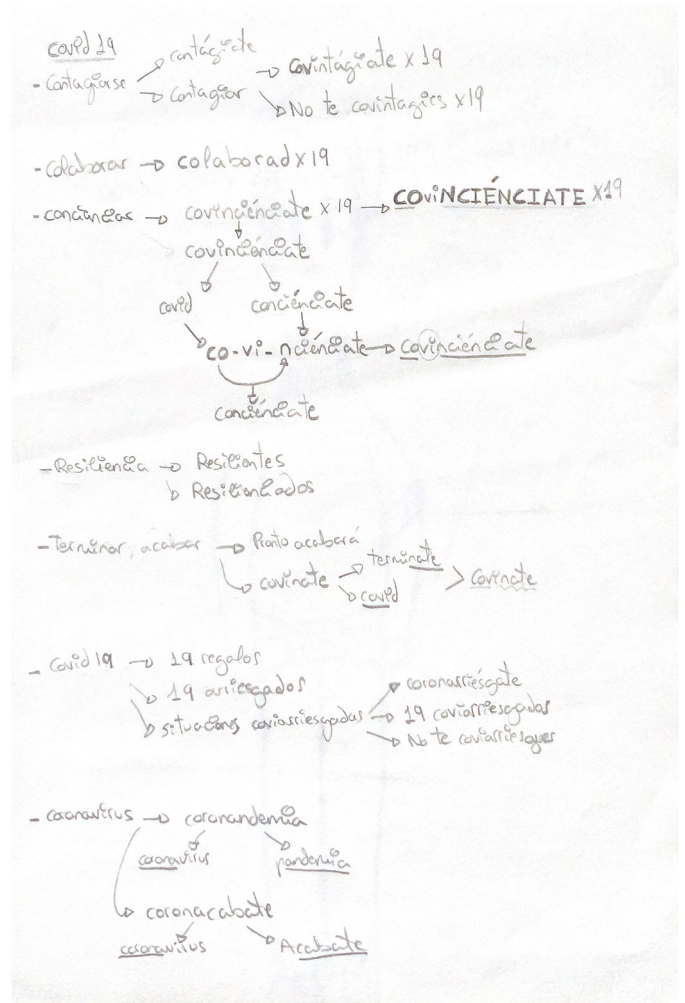 Covid 19
- Contagiarse → contágiate → Covintágiate x 19
→ Contagiar → No te covintagies x19
- Colaborar → colaborad x 19
- conciencias → covinciénciate x 19 → COviNCIÉNCIATE X19
covinciénciate
covid conciénciate
co-vi-nciénciate → covinciénciate
conciénciate
- Resiliencia → Resilientes
→ Resilienciados
- Terminar, acabar → Pronto acabará
→ covinate → terminate > Covinate
→ covid
- Covid 19 → 19 regalos
→ 19 arriesgados
→ situaciones coviarriesgadas → coronarriésgate
→ 19 coviarriesgados
→ No te coviarriesgues
- coronavirus → coronandemia
coronavirus pandemia
→ coronacabate
coronavirus Acabate